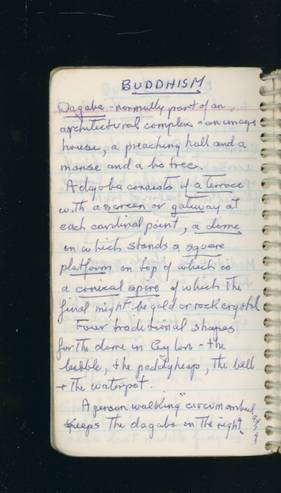 BUDDHISM
Dagaba - normally part of an
architectural complex - an image
house, a preaching hall and a
manse and a bo tree.
A dagoba consists of a terrace
with a screen or gateway at
each cardinal point, a dome
on which stands a square
platform on top of which is
a conical spire of which the
final might be gold or rock crystal
Four traditional shapes
for the dome in Ceylon - the
bubble, the paddyheap, the bell
+ the waterpot.
A person walking "circumambul
keeps the dagaba on the right